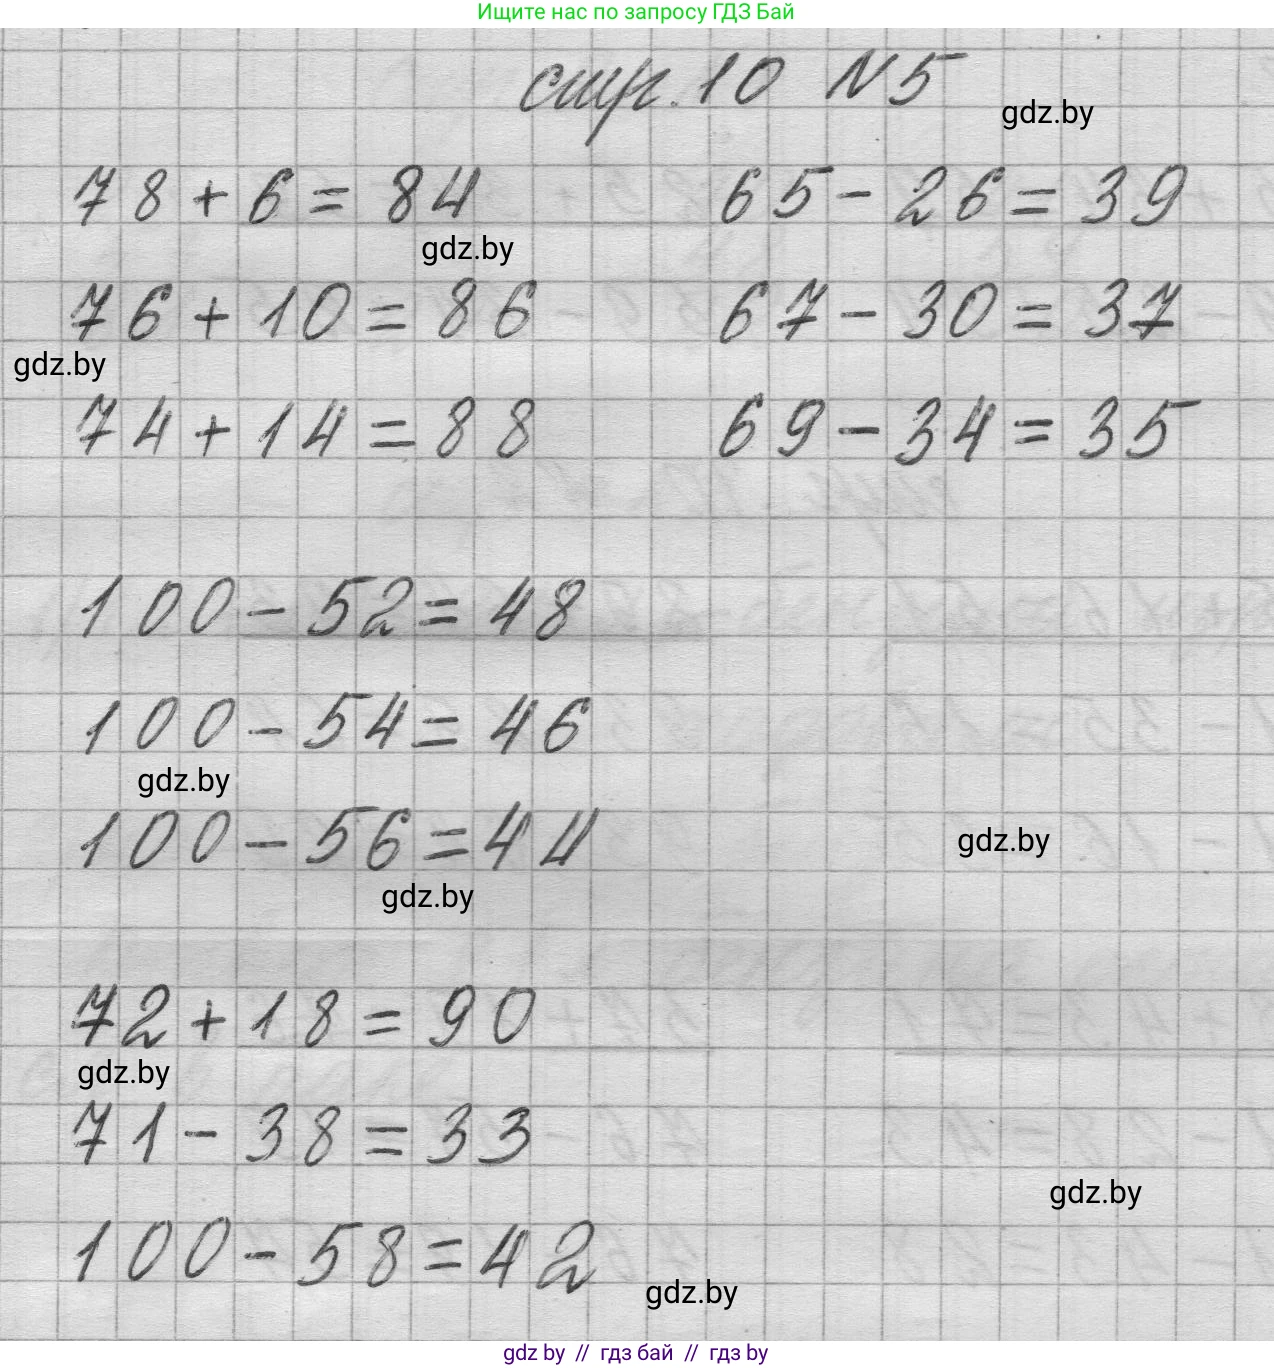 Ищите нас по запросу ГДЗ Бай
стр. 10 №5
gdz.by
78 + 6 = 84 65 - 26 = 39
gdz.by
76 + 10 = 86 67 - 30 = 37
gdz.by
74 + 14 = 88 69 - 34 = 35
100 - 52 = 48
100 - 54 = 46
gdz.by
100 - 56 = 44
gdz.by
gdz.by
72 + 18 = 90
gdz.by
71 - 38 = 33
gdz.by
100 - 58 = 42
gdz.by
gdz by // гдз бай // гдз by